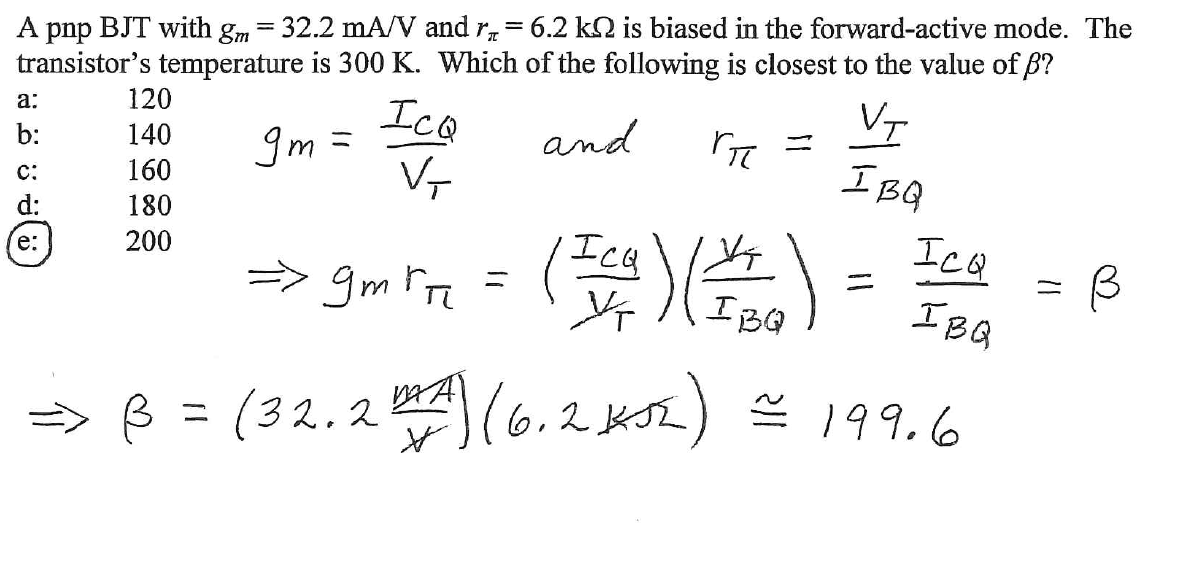 A pnp BJT with gₘ = 32.2 mA/V and r_π = 6.2 kΩ is biased in the forward-active mode. The
transistor's temperature is 300 K. Which of the following is closest to the value of β?
a: 120
b: 140
c: 160
d: 180
e: 200
gm = ICQ / VT and rπ = VT / IBQ
=> gm rπ = (ICQ / VT)(VT / IBQ) = ICQ / IBQ = β
=> β = (32.2 mA/V)(6.2 kΩ) ≅ 199.6